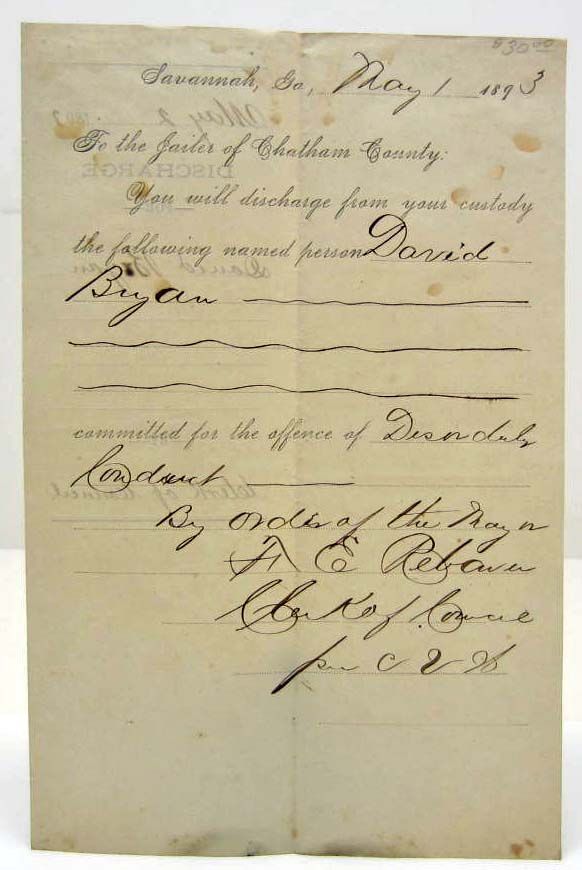 $30.00
Savannah, Ga., May 1 1893
To the Jailer of Chatham County:
You will discharge from your custody
the following named person David
Bryan
committed for the offence of Disorderly
Conduct
By order of the Mayor
F E Rebarer
Clerk of Council
per C V H
May 2 189
DISCHARGE
David Bryan
Clerk of Council